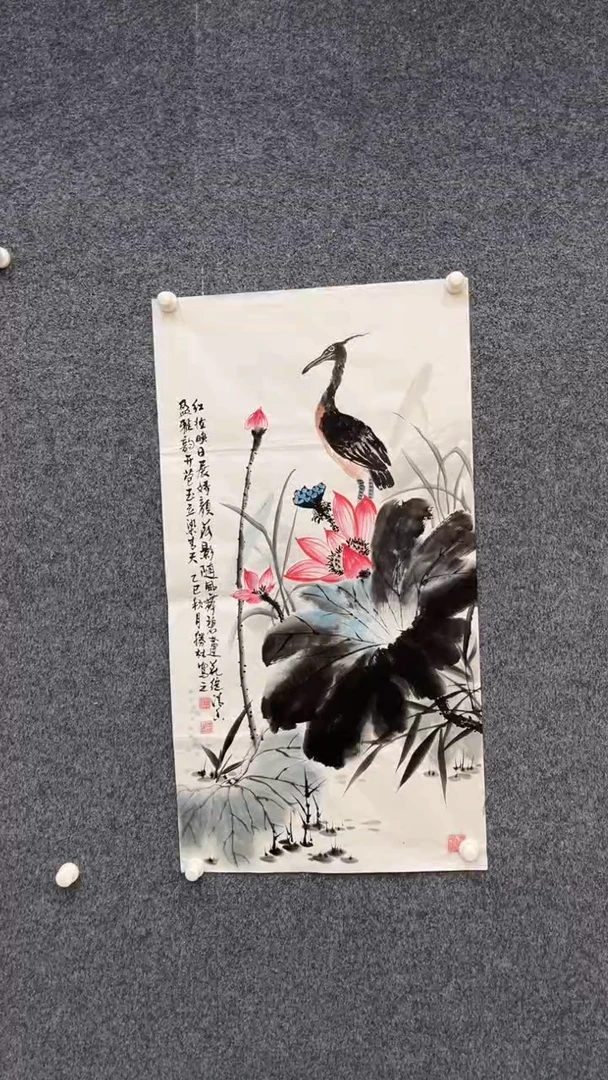 红妆映日展娇颜荷影随风舞碧莲花绽清香
盈雅韵开苞玉立梁青天 乙巳秋月 写之